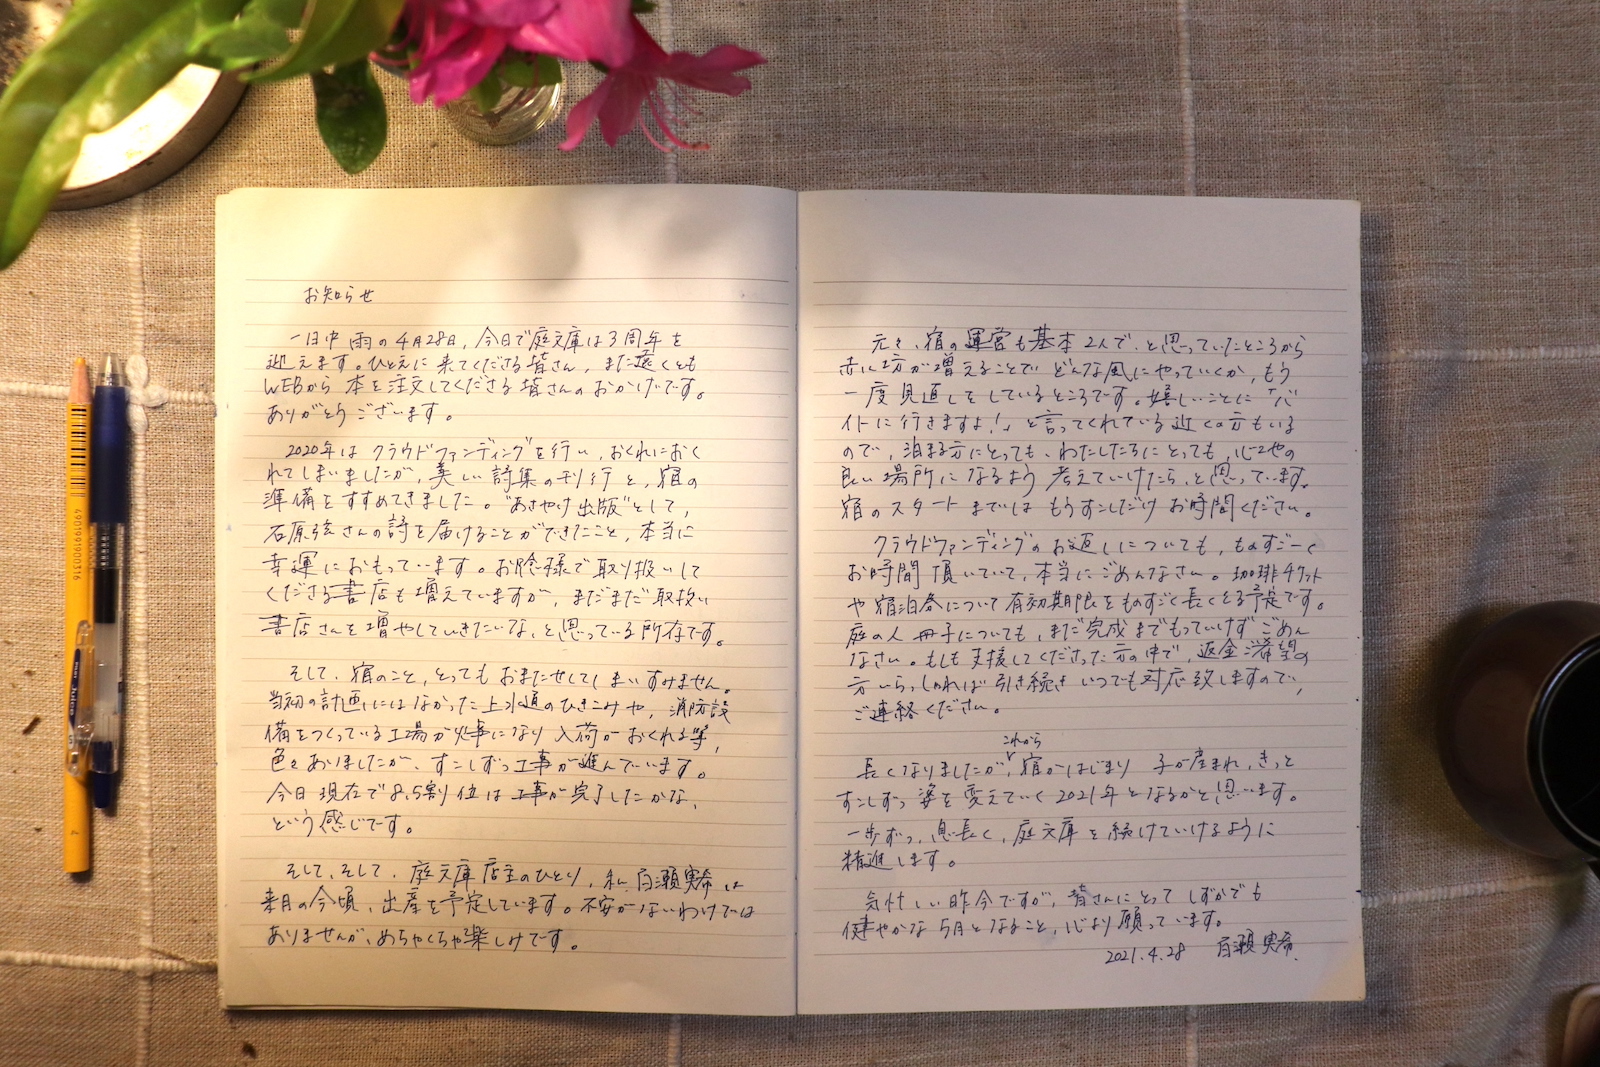 お知らせ
一日中雨の4月28日，今日で庭文庫は3周年を
迎えます。ひとえに来てくださる皆さん，また遠くとも
WEBから本を注文してくださる皆さんのおかげです。
ありがとうございます。
2020年はクラウドファンディングを行い，おくれにおく
れてしまいましたが，美しい詩集の刊行と，宿の
準備をすすめてきました。"あさやけ出版"として，
石原弦さんの詩を届けることができたこと，本当に
幸運におもっています。お陰様で取り扱いして
くださる書店も増えていますが，まだまだ取扱い
書店さんを増やしていきたいな，と思っている所存です。
そして，宿のこと，とってもおまたせしてしまいすみません。
当初の計画にはなかった上水道のひきこみや，消防設
備をつくっている工場が火事になり入荷がおくれる等，
色々ありましたが、すこしずつ工事が進んでいます。
今日現在で8.5割位は工事が完了したかな，
という感じです。
そして，そして，庭文庫店主のひとり，私，百瀬実希は
来月の今頃，出産を予定しています。不安がないわけでは
ありませんが、めちゃくちゃ楽しみです。
元々，宿の運営も基本2人で，と思っていたところから
赤ん坊が増えることでどんな風にやっていくか，もう
一度見直しをしているところです。嬉しいことに「バ
イトに行きますよ！」と言ってくれている近くの方もいる
ので，泊まる方にとっても，わたしたちにとっても，心地の
良い場所になるよう考えていけたら，と思っています。
宿のスタートまではもうすこしだけお時間ください。
クラウドファンディングのお返しについても，ものすごーく
お時間頂いていて，本当にごめんなさい。珈琲チケット
や宿泊券について有効期限をものすごく長くとる予定です。
庭の人冊子についても，まだ完成までもっていけずごめん
なさい。もしも支援してくださった方の中で，返金ご希望の
方いらっしゃれば引き続きいつでも対応致しますので，
ご連絡ください。
長くなりましたが，これから宿がはじまり子が産まれ，きっと
すこしずつ姿を変えていく2021年となるかと思います。
一歩ずつ，息長く，庭文庫を続けていけるように
精進します。
気忙しい昨今ですが，皆さんにとってしずかでも
健やかな5月となること，心より願っています。
2021.4.28 百瀬実希.
4901991900316